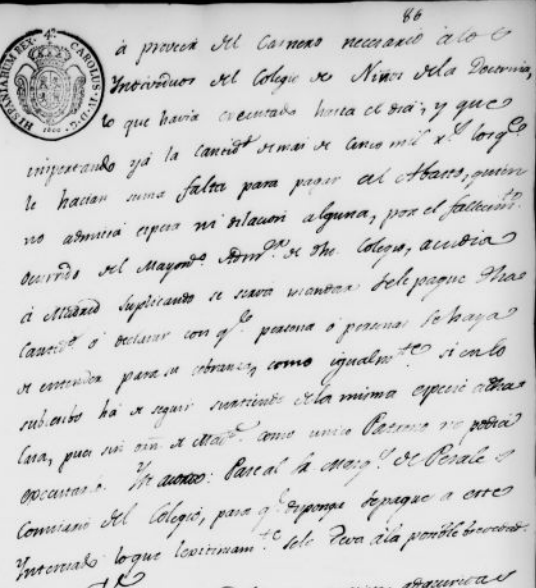 86
HISPANIARUM REX. CAROLUS. IV. D. G.
à proveer del Carnero necesario à los
Individuos del Colegio de Niños dela Doctrina,
lo que havia executado hasta el dia; y que
importando yá la cantidᵈ. de mas de cinco mil rˢ. los qᵉ.
le hacian suma falta para pagar al Abasto, quien
no admitia espera ni dilacion alguna, por el fallecimᵗᵒ.
ocurrido del Mayordᵒ. Admᵒʳ. de dho. Colegio, acudia
à Madrid suplicando se sirva mandar sele pague dha
Cantidᵈ. ó declarar con qᵉ. persona ó personas se haya
de entender para su cobranza, como igualmᵗᵉ. si en lo
subcesivo há de seguir surtiendo dela misma especie à dha
Casa, pues sin orn. de Madᵈ. como unico Patrono no podia
executarlo. Se acordó: Pase al Sr. Marqˢ. de Perales
Comisario del Colegio, para qᵉ. disponga sepague a este
Interesado lo que lexitimamᵗᵉ. sele deva àla posible brevedad.